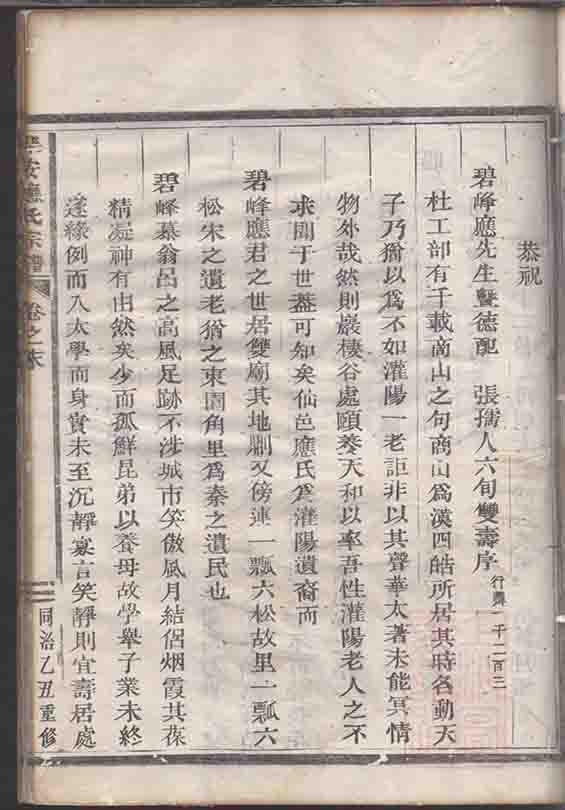 恭祝
碧峰應先生曁德配 張孺人六旬雙壽序 行 千二百三
杜工部有千載商山之句商山爲漢四皓所居其時名動天
子乃猶以爲不如灌陽一老詎非以其聲華太著未能冥情
物外哉然則巖棲谷處頤養天和以率吾性灌陽老人之不
求聞于世葢可知矣仙邑應氏爲灌陽遺裔而
碧峰應君之世居雙廟其地則又傍連一瓢六松故里一瓢六
松宋之遺老猶之東園角里爲秦之遺民也
碧峰慕翁呂之高風足跡不涉城市笑傲風月結侶烟霞其葆
精凝神有由然矣少而孤鮮昆弟以養母故學舉子業未終
遂緣例而入太學而身實未至沉靜寡言笑靜則宜壽居處
安應氏宗譜
卷之末
同治乙丑重修